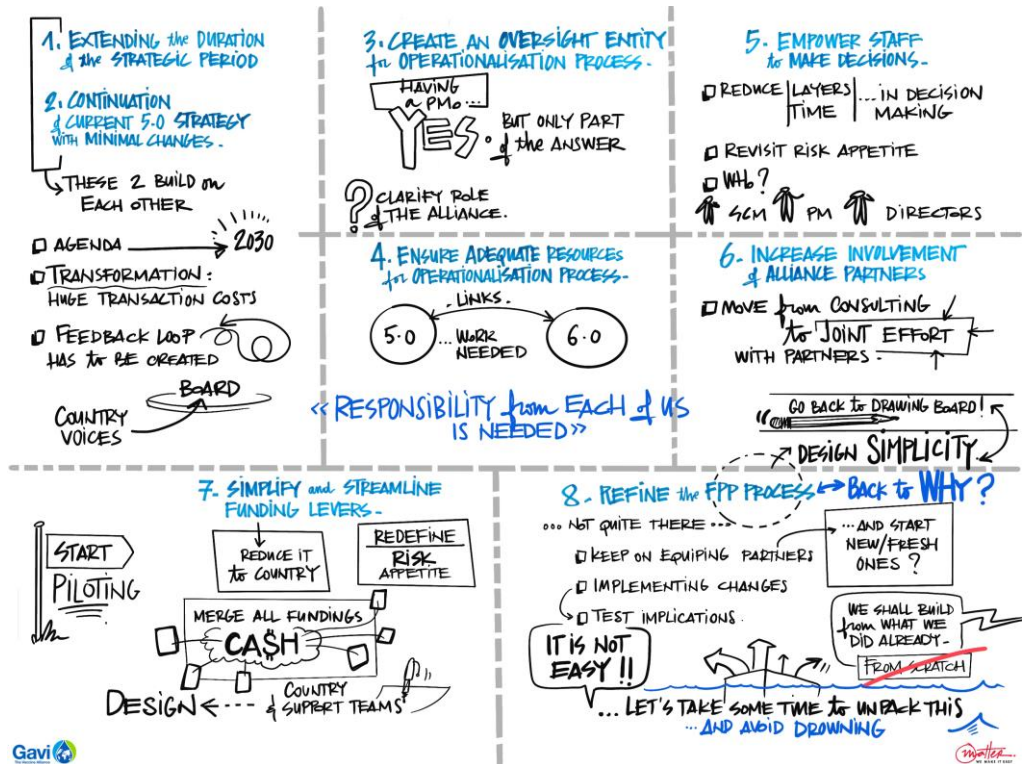 1. EXTENDING the DURATION
of the STRATEGIC PERIOD
2. CONTINUATION
of CURRENT 5.0 STRATEGY
WITH MINIMAL CHANGES.
THESE 2 BUILD on
EACH OTHER
AGENDA 2030
TRANSFORMATION:
HUGE TRANSACTION COSTS
FEEDBACK LOOP
HAS to BE CREATED
BOARD
COUNTRY
VOICES
3. CREATE AN OVERSIGHT ENTITY
for OPERATIONALISATION PROCESS.
HAVING
a PMO...
YES.
BUT ONLY PART
of the ANSWER
? CLARIFY ROLE
of THE ALLIANCE.
4. ENSURE ADEQUATE RESOURCES
for OPERATIONALISATION PROCESS.
LINKS.
5.0 ...WORK
NEEDED 6.0
«RESPONSIBILITY from EACH of US
IS NEEDED»
5. EMPOWER STAFF
to MAKE DECISIONS.
REDUCE LAYERS ...IN DECISION
TIME MAKING
REVISIT RISK APPETITE
WHO?
SCM PM DIRECTORS
6. INCREASE INVOLVEMENT
of ALLIANCE PARTNERS
MOVE from CONSULTING
to JOINT EFFORT
WITH PARTNERS.
GO BACK to DRAWING BOARD!
DESIGN SIMPLICITY
7. SIMPLIFY and STREAMLINE
FUNDING LEVERS.
START
PILOTING
REDUCE IT
to COUNTRY
REDEFINE
RISK
APPETITE
MERGE ALL FUNDINGS
CA$H
DESIGN
COUNTRY
& SUPPORT TEAMS
8. REFINE the FPP PROCESS BACK to WHY?
... NOT QUITE THERE ...
KEEP ON EQUIPING PARTNERS
IMPLEMENTING CHANGES
TEST IMPLICATIONS.
...AND START
NEW/FRESH
ONES?
WE SHALL BUILD
from WHAT WE
DID ALREADY.
FROM SCRATCH
IT IS NOT
EASY!!
...LET'S TAKE SOME TIME to UNPACK THIS
...AND AVOID DROWNING
Gavi
The Vaccine Alliance
matter
WE MAKE IT EASY